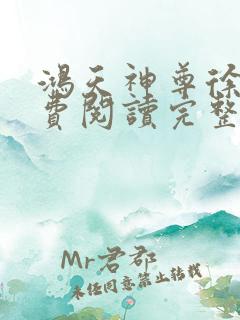 鴻天神尊徐
費閱讀完整
Mr君郡
未经同意禁止转载